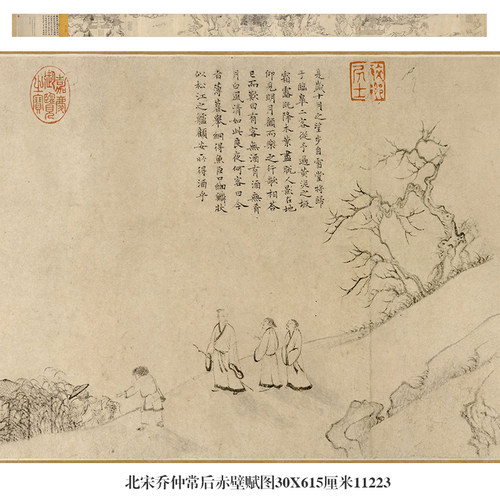 是歲十月之望步自雪堂將歸
于臨皋二客從予過黃泥之坂
霜露既降木葉盡脫人影在地
仰見明月顧而樂之行歌相答
已而歎曰有客無酒有酒無肴
月白風清如此良夜何客曰今
者薄暮舉網得魚巨口細鱗狀
似松江之鱸顧安所得酒乎
嘉慶御覽之寶
北宋乔仲常后赤壁赋图30X615厘米11223